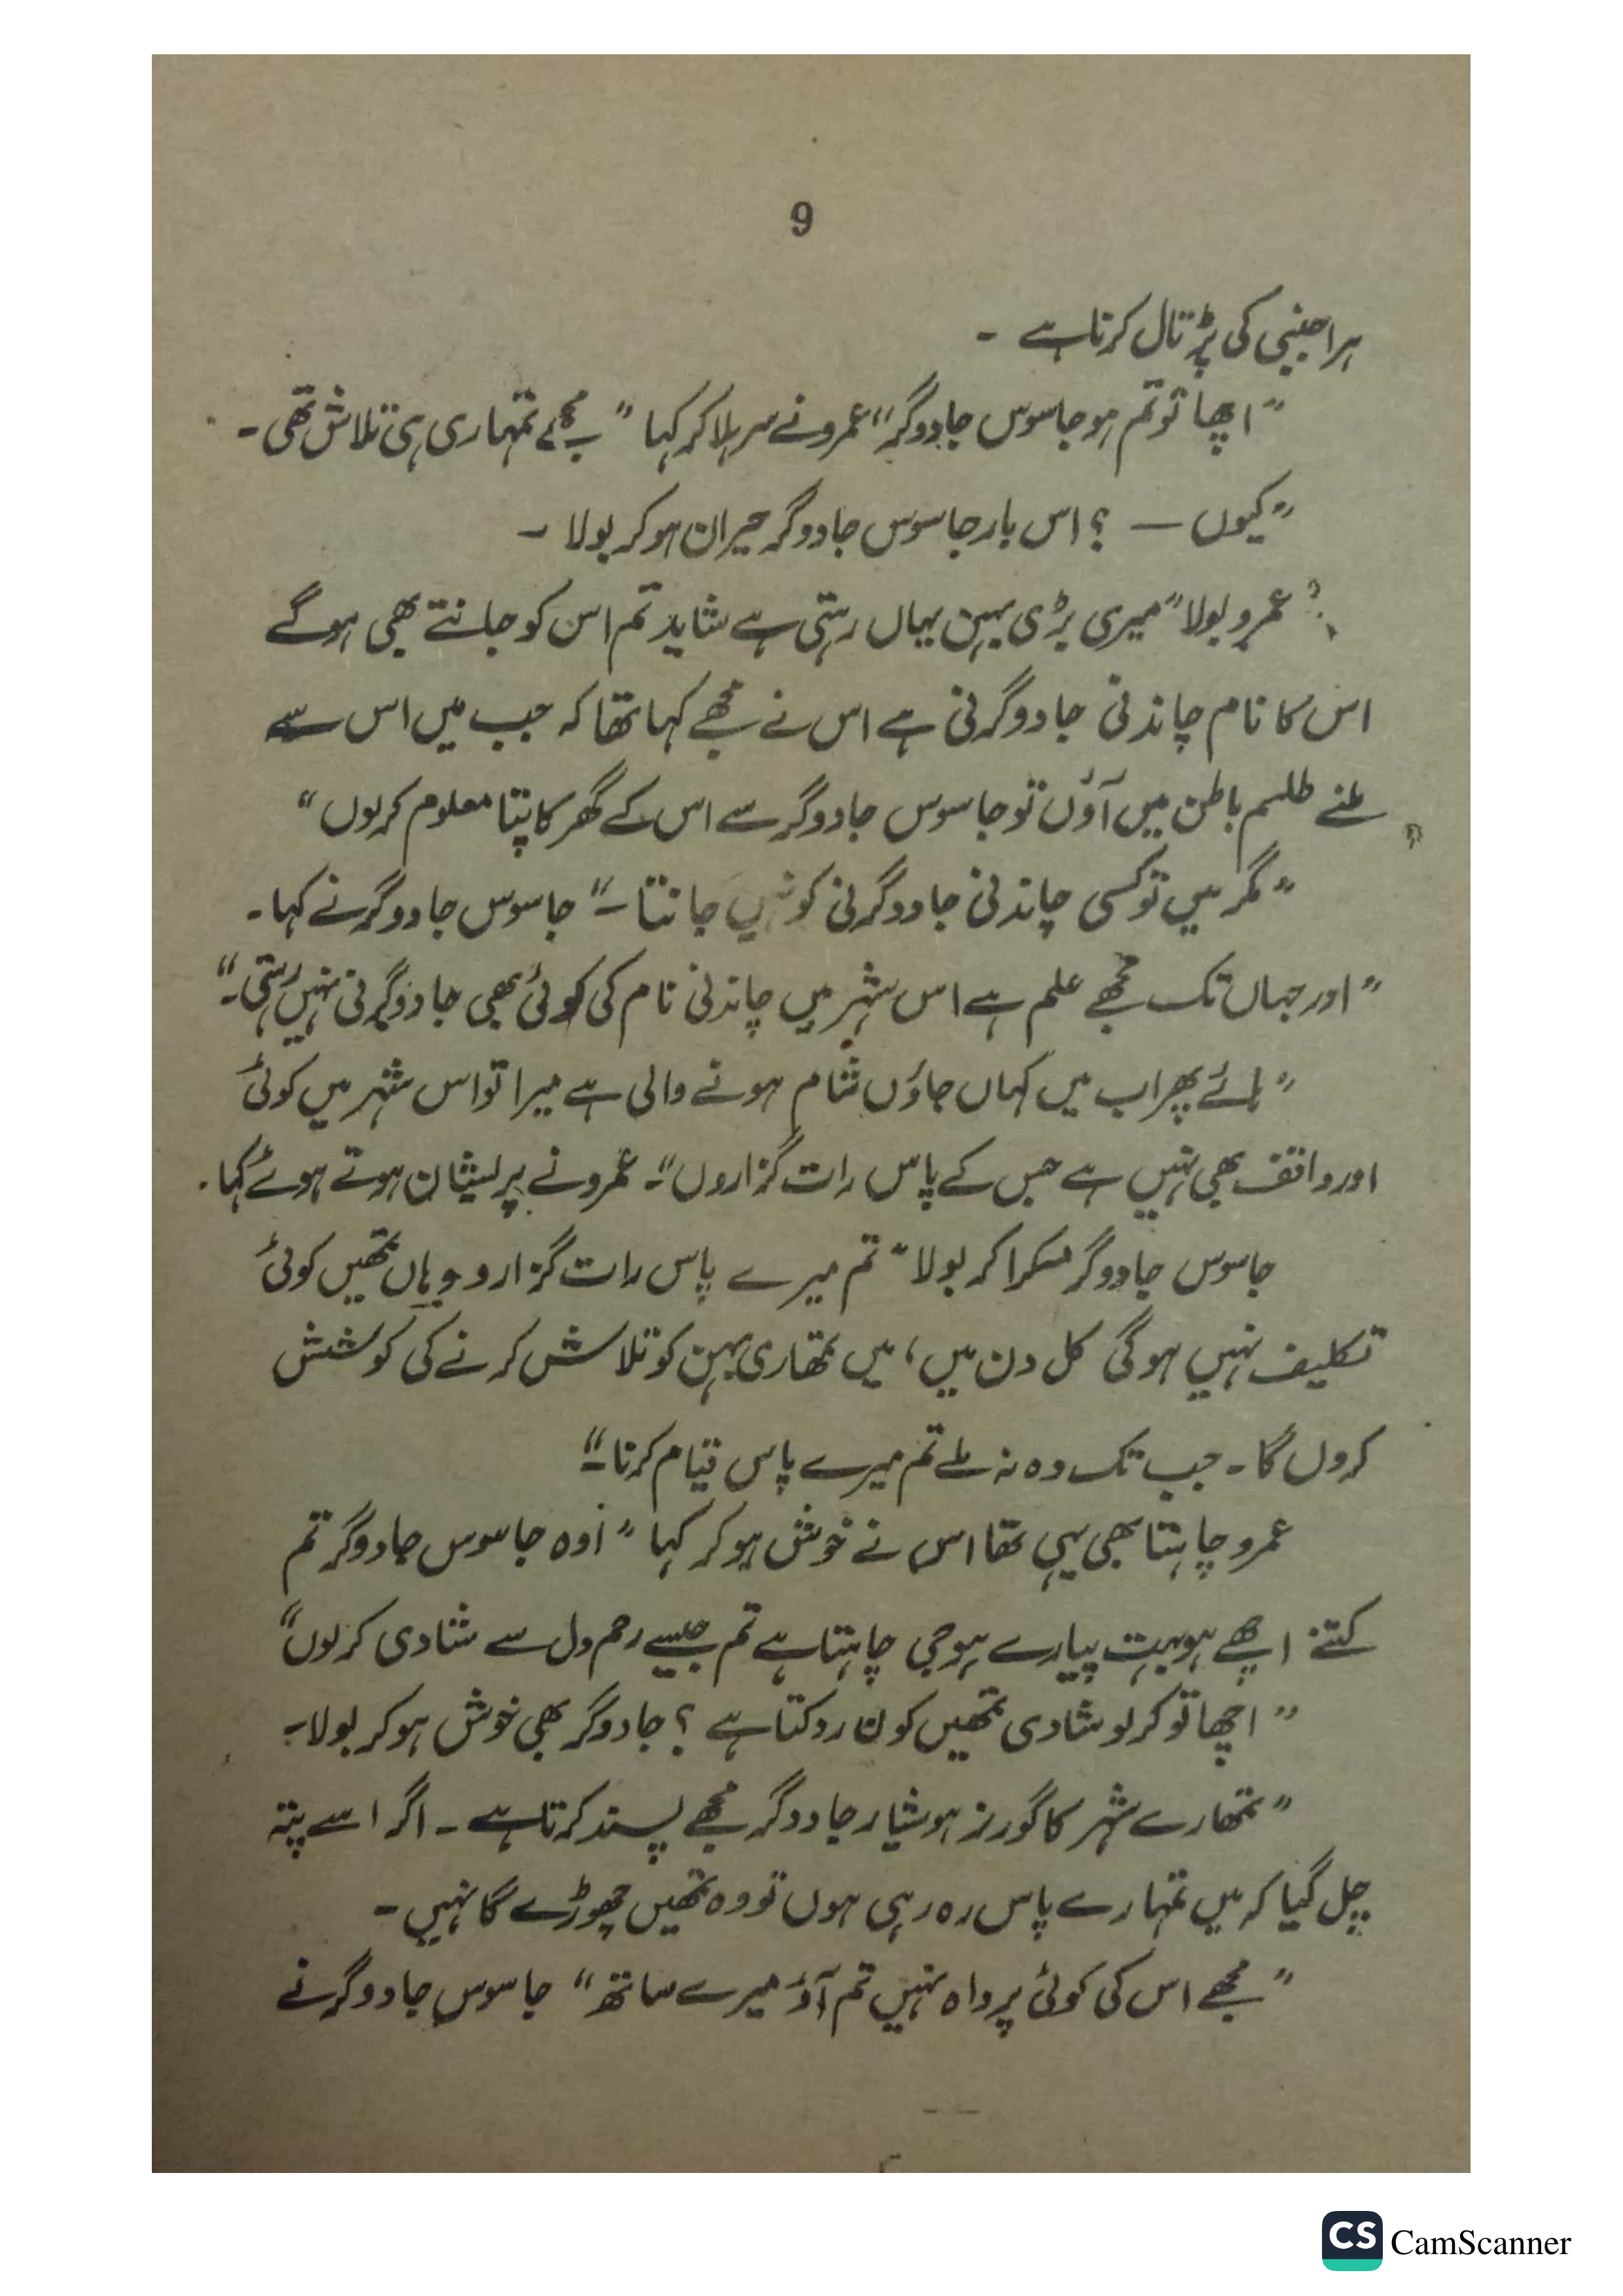 9
ہر اجنبی کی پڑتال کرتا ہے ۔
”اچھا تو تم ہو جاسوس جادوگر“ عمرو نے سر ہلا کر کہا ” مجھے تمہاری ہی تلاش تھی ۔
”کیوں — ؟ اس بار جاسوس جادوگر حیران ہو کر بولا ۔
عمرو بولا ”میری بڑی بہن یہاں رہتی ہے شاید تم اس کو جانتے بھی ہو گے
اس کا نام چاندنی جادوگرنی ہے اس نے مجھے کہا تھا کہ جب میں اس سے
ملنے طلسم باطن میں آؤں تو جاسوس جادوگر سے اس کے گھر کا پتا معلوم کر لوں“
”مگر میں تو کسی چاندنی جادوگرنی کو نہیں جانتا ۔“ جاسوس جادوگر نے کہا ۔
”اور جہاں تک مجھے علم ہے اس شہر میں چاندنی نام کی کوئی بھی جادوگرنی نہیں رہتی ۔“
”ہائے پھر اب میں کہاں جاؤں شام ہونے والی ہے میرا تو اس شہر میں کوئی
اور واقف بھی نہیں ہے جس کے پاس رات گزاروں“۔ عمرو نے پریشان ہوتے ہوئے کہا ۔
جاسوس جادوگر مسکرا کر بولا ” تم میرے پاس رات گزارو وہاں تمھیں کوئی
تکلیف نہیں ہوگی کل دن میں، میں تمھاری بہن کو تلاش کرنے کی کوشش
کروں گا ۔ جب تک وہ نہ ملے تم میرے پاس قیام کرنا ۔“
عمرو چاہتا بھی یہی تھا اس نے خوش ہو کر کہا ” اوہ جاسوس جادوگر تم
کتنے اچھے ہو بہت پیارے ہو جی چاہتا ہے تم جیسے رحم دل سے شادی کر لوں“
”اچھا تو کر لو شادی تمھیں کون روکتا ہے ؟ جادوگر بھی خوش ہو کر بولا ۔
”تمھارے شہر کا گورنر ہوشیار جادوگر مجھے پسند کرتا ہے ۔ اگر اسے پتہ
چل گیا کہ میں تمہارے پاس رہ رہی ہوں تو وہ تمھیں چھوڑے گا نہیں ۔
”مجھے اس کی کوئی پرواہ نہیں تم آؤ میرے ساتھ“ جاسوس جادوگر نے
CS CamScanner